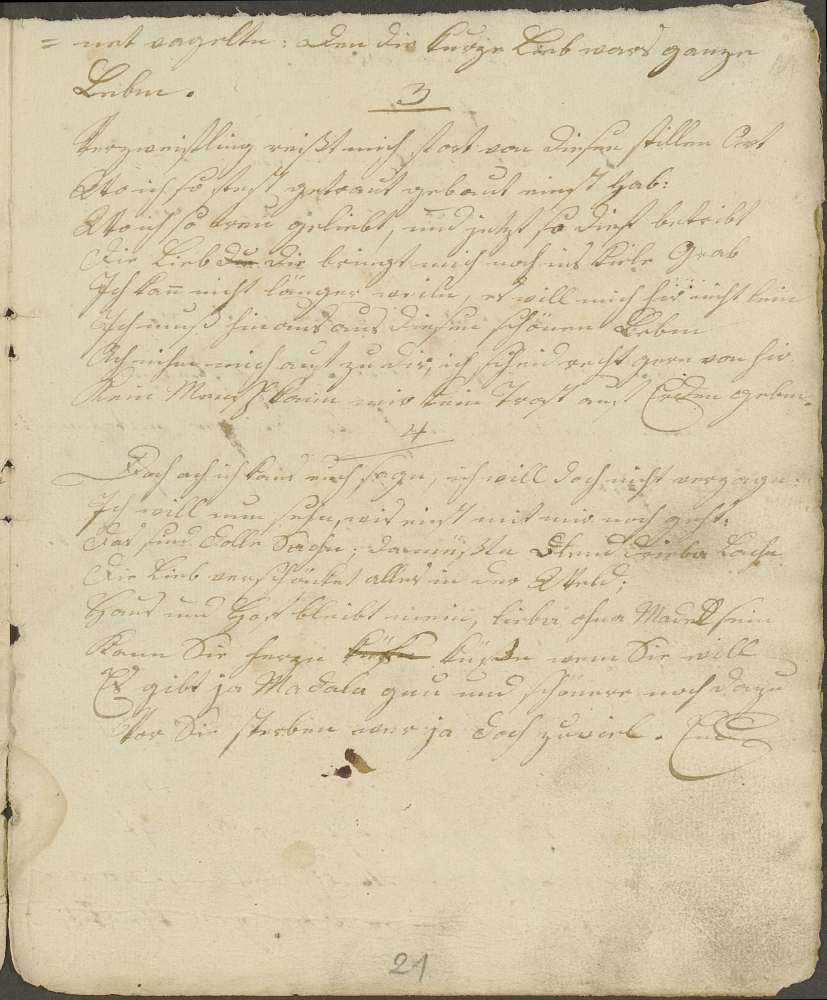 = net vageltn: den die kurze Lieb wars ganze
Leben.
3
Verzweiflung reißt mich fort von diesen stillen Ort
Wo ich so fest getraut gebaut einst hab:
Wo ich so treu geliebt, und jetzt so dief betribt
Die Lieb die bringt mich noch ins kiele Grab
Ich kan̄ nicht länger weiln, es will mich hir nicht
Ich muß hinaus aus diesen schönen Leben
Ach nihm mich auf zu dir, ich scheid recht gern von hir
Kein Mensch kann mir kein Trost auf Erden geben.
4
Doch ach ich kans euch sagn, ich will doch nicht verzagn:
Ich will nun sehn, wies einst mit mir noch geht:
Das sind dolle Sachn; da drieber Lachn
Die Lieb verschönket alles in der Weld;
Haus und Hof bleibt mein, lieber ohne Madel sein
Kann Sie herzn küssen wem Sie will
Es gibt ja Madaln gnu und schönere noch dazu
Vor Sie sterben wer ja doch zuviel. End
21